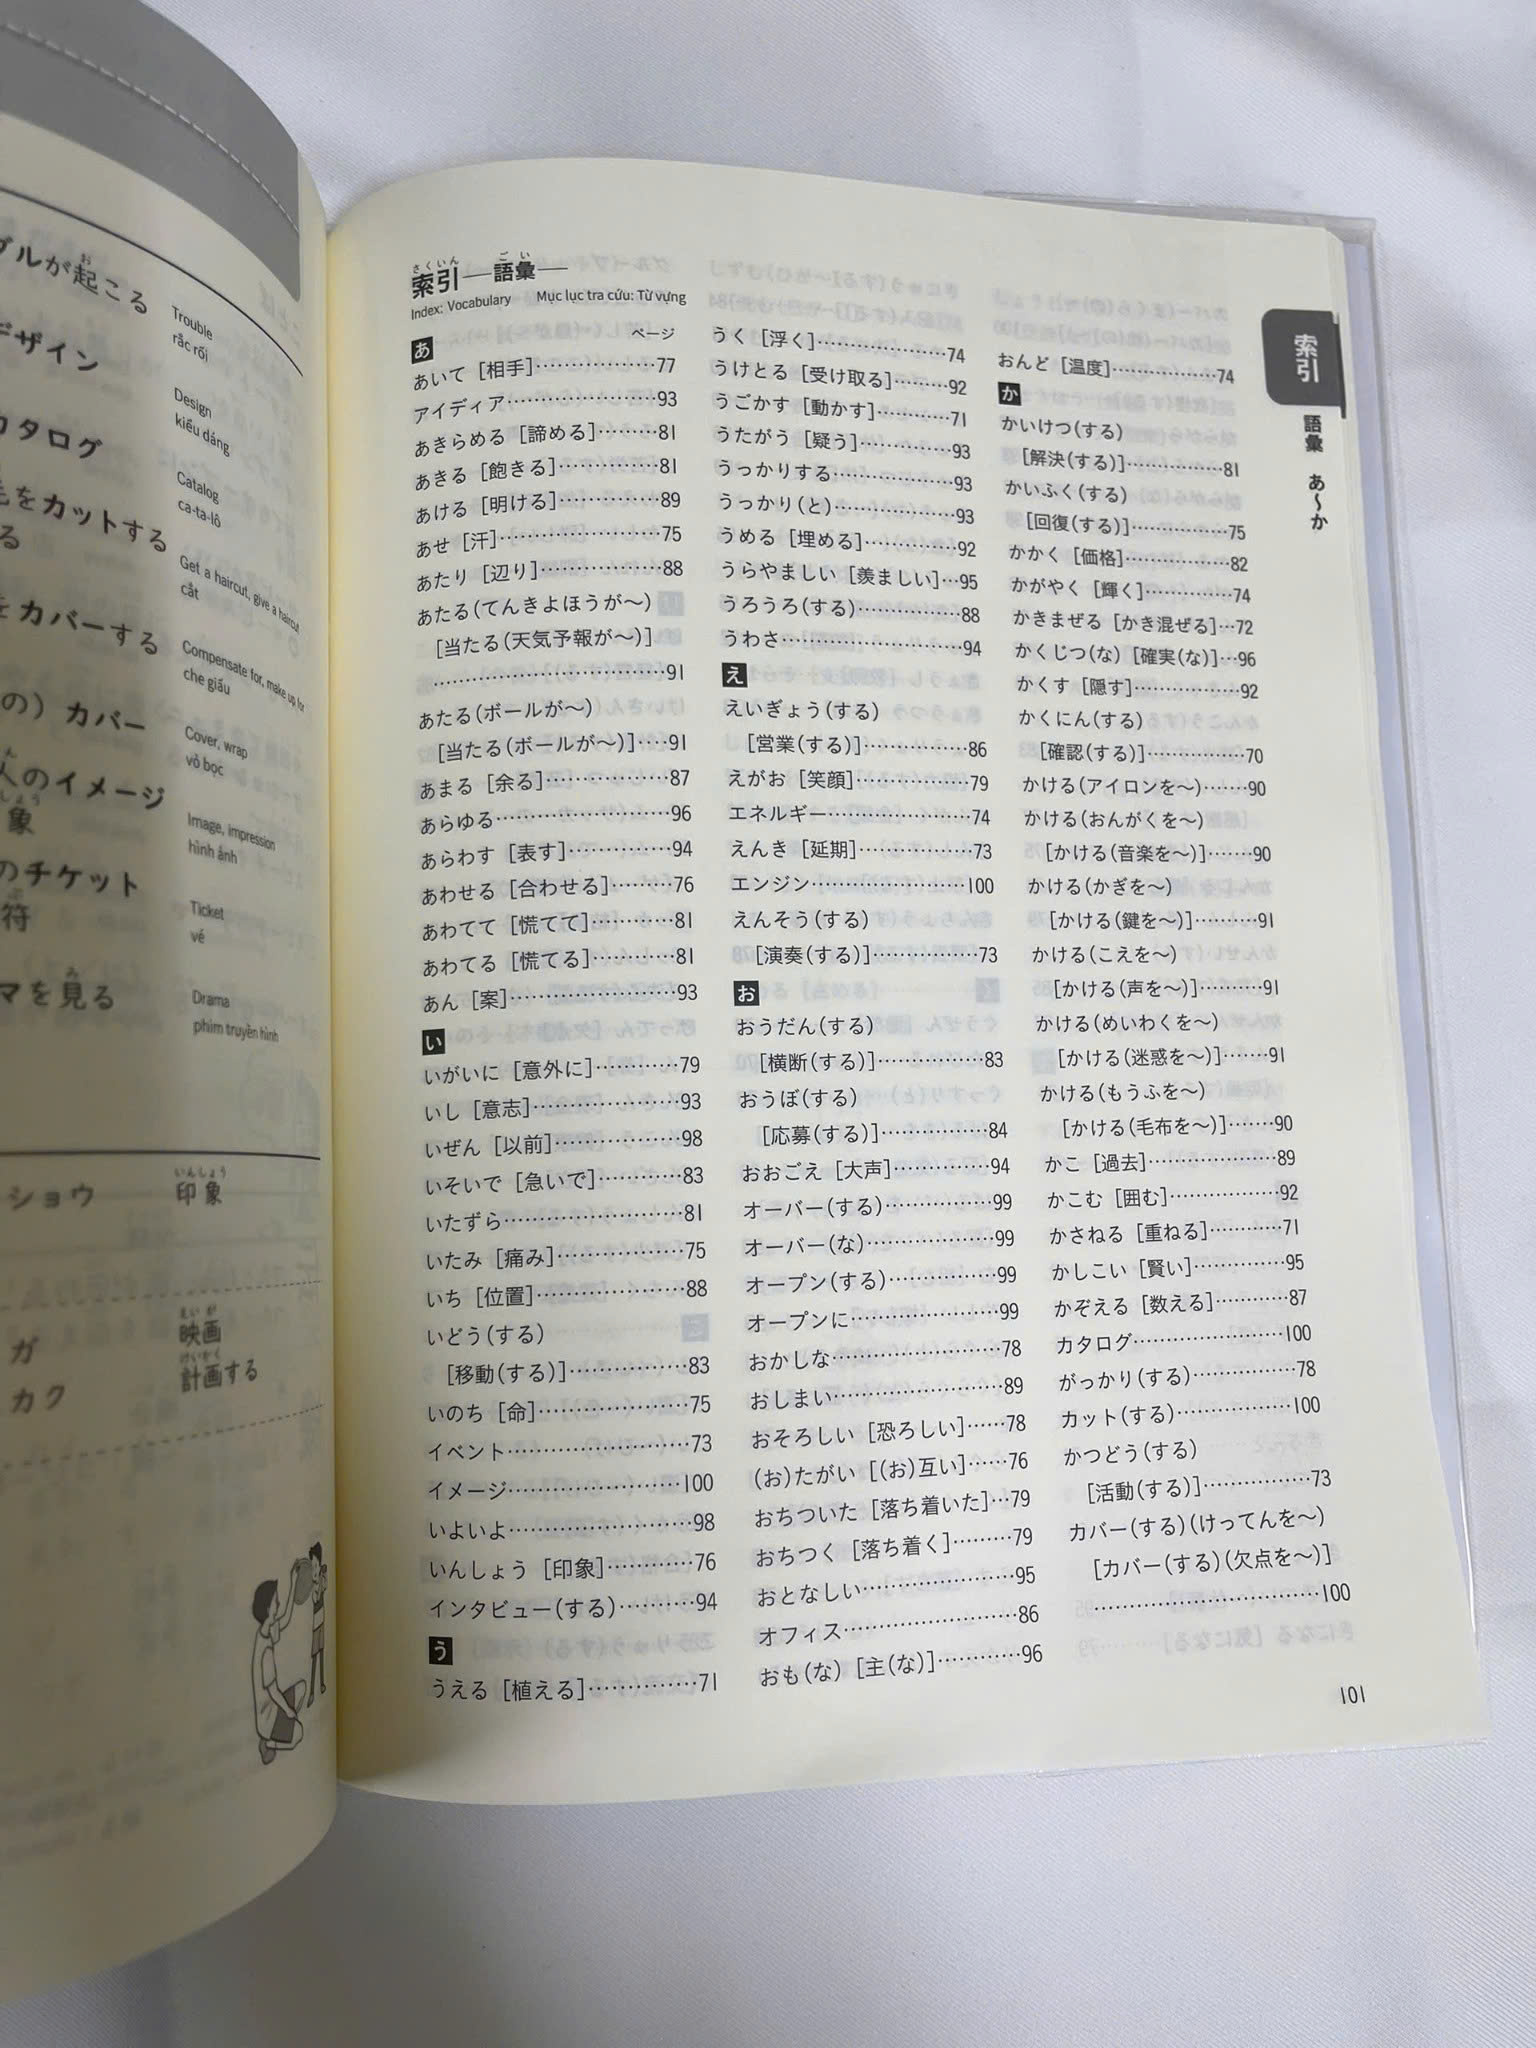 ブルが起こる
お
Trouble
rắc rối
デザイン
Design
kiểu dáng
カタログ
Catalog
ca-ta-lô
毛をカットする
る
Get a haircut, give a haircut
cắt
をカバーする
Compensate for, make up for
che giấu
の）カバー
Cover, wrap
vỏ bọc
人のイメージ
象
Image, impression
hình ảnh
のチケット
符
Ticket
vé
マを見る
み
Drama
phim truyền hình
ショウ
いんしょう
印象
ガ
えいが
映画
カク
けいかく
計画する
さくいん ごい
索引―語彙―
Index: Vocabulary Mục lục tra cứu: Từ vựng
ページ
あ
あいて［相手］………………77
アイディア……………………93
あきらめる［諦める］………81
あきる［飽きる］……………81
あける［明ける］……………89
あせ［汗］……………………75
あたり［辺り］………………88
あたる(てんきよほうが～)
［当たる(天気予報が～)］
………………………………91
あたる(ボールが～)
［当たる(ボールが～)］……91
あまる［余る］………………87
あらゆる………………………96
あらわす［表す］……………94
あわせる［合わせる］………76
あわてて［慌てて］…………81
あわてる［慌てる］…………81
あん［案］……………………93
い
いがいに［意外に］…………79
いし［意志］…………………93
いぜん［以前］………………98
いそいで［急いで］…………83
いたずら………………………81
いたみ［痛み］………………75
いち［位置］…………………88
いどう(する)
［移動(する)］………………83
いのち［命］…………………75
イベント………………………73
イメージ………………………100
いよいよ………………………98
いんしょう［印象］…………76
インタビュー(する)…………94
う
うえる［植える］……………71
うく［浮く］…………………74
うけとる［受け取る］………92
うごかす［動かす］…………71
うたがう［疑う］……………93
うっかりする…………………93
うっかり(と)…………………93
うめる［埋める］……………92
うらやましい［羨ましい］…95
うろうろ(する)………………88
うわさ…………………………94
え
えいぎょう(する)
［営業(する)］………………86
えがお［笑顔］………………79
エネルギー……………………74
えんき［延期］………………73
エンジン………………………100
えんそう(する)
［演奏(する)］………………73
お
おうだん(する)
［横断(する)］………………83
おうぼ(する)
［応募(する)］………………84
おおごえ［大声］……………94
オーバー(する)………………99
オーバー(な)…………………99
オープン(する)………………99
オープンに……………………99
おかしな………………………78
おしまい………………………89
おそろしい［恐ろしい］……78
(お)たがい［(お)互い］……76
おちついた［落ち着いた］…79
おちつく［落ち着く］………79
おとなしい……………………95
オフィス………………………86
おも(な)［主(な)］…………96
おんど［温度］………………74
か
かいけつ(する)
［解決(する)］………………81
かいふく(する)
［回復(する)］………………75
かかく［価格］………………82
かがやく［輝く］……………74
かきまぜる［かき混ぜる］…72
かくじつ(な)［確実(な)］…96
かくす［隠す］………………92
かくにん(する)
［確認(する)］………………70
かける(アイロンを～)………90
かける(おんがくを～)
［かける(音楽を～)］………90
かける(かぎを～)
［かける(鍵を～)］…………91
かける(こえを～)
［かける(声を～)］…………91
かける(めいわくを～)
［かける(迷惑を～)］………91
かける(もうふを～)
［かける(毛布を～)］………90
かこ［過去］…………………89
かこむ［囲む］………………92
かさねる［重ねる］…………71
かしこい［賢い］……………95
かぞえる［数える］…………87
カタログ………………………100
がっかり(する)………………78
カット(する)…………………100
かつどう(する)
［活動(する)］………………73
カバー(する)(けってんを～)
［カバー(する)(欠点を～)］
………………………………100
索引
語彙 あ～か
101